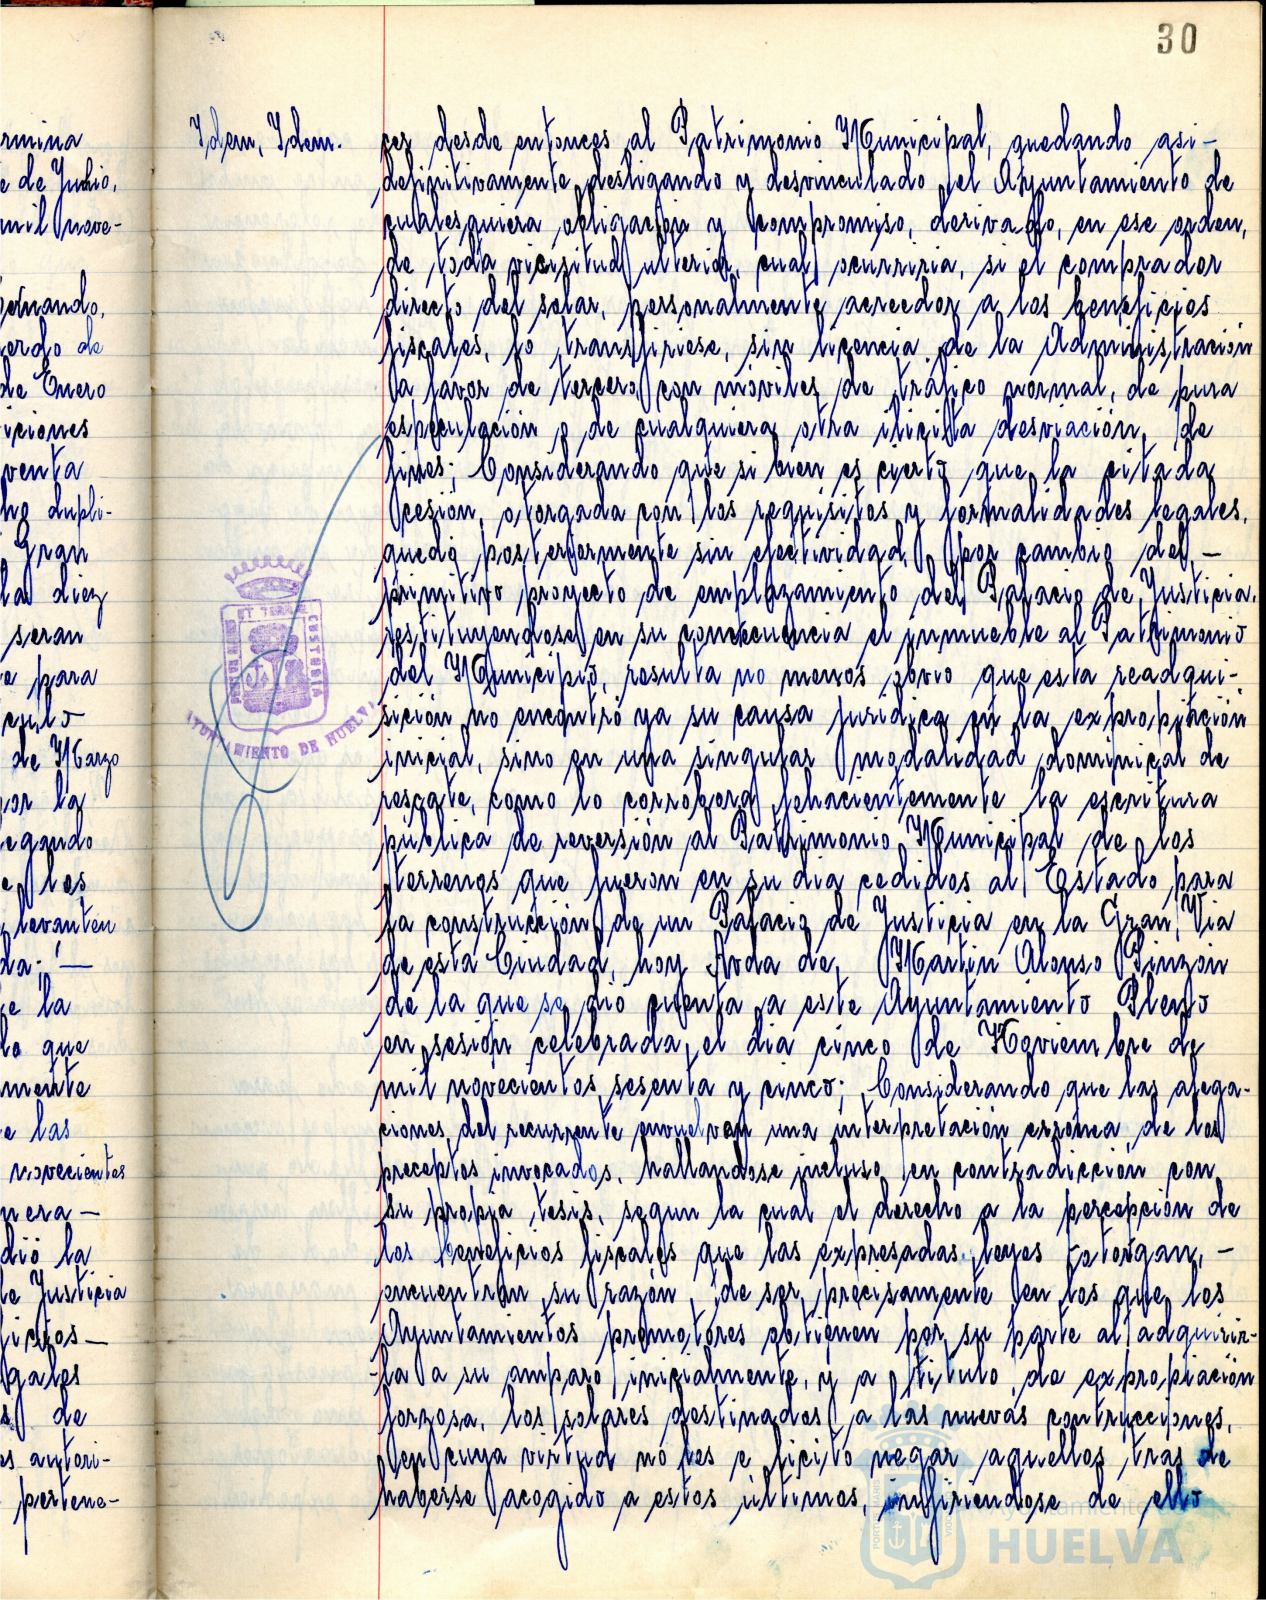 30
rmina
e de Junio,
mil nove-
ernando,
erdo de
de Enero
iciones
venta
ho dupli-
Gran
la diez
seran
e para
culo
de Marzo
or la
egando
e los
levanten
da;
e la
lo que
mente
e las
novecientos
nera-
dió la
de Justicia
ficios-
gales
s de
os autori-
pertene-
Idem, Idem.
cer desde entonces al Patrimonio Municipal, quedando asi-
definitivamente desligando y desvinculado el Ayuntamiento de
cualesquiera obligación y compromiso, derivado, en ese orden,
de toda vicisitud ulterior, cual ocurriria, si el comprador
directo del solar, personalmente acreedor a los beneficios
fiscales, lo transfiriese, sin licencia de la Administración
a favor de tercero, con móviles de tráfico normal, de pura
especulación o de cualquiera otra ilicita desviación de
fines; Considerando que si bien es cierto que la citada
cesión, otorgada con los requisitos y formalidades legales,
quedó posteriormente sin efectividad por cambio del -
primitivo proyecto de emplazamiento del Palacio de Justicia,
restituyendose en su consecuencia el inmueble al Patrimonio
del Municipio, resulta no menos obvio que esta readqui-
sición no encontró ya su causa juridica en la expropiación
inicial, sino en una singular modalidad dominical de
rescate, como lo corrobora fehacientemente la escritura
pública de reversión al Patrimonio Municipal de los
terrenos que fueron en su dia cedidos al Estado para
la construcción de un Palacio de Justicia en la Gran Via
de esta Ciudad, hoy Avda de Martin Alonso Pinzón
de la que se dió cuenta a este Ayuntamiento Pleno
en sesión celebrada el dia cinco de Noviembre de
mil novecientos sesenta y cinco; Considerando que las alega-
ciones del recurrente envuelven una interpretación erronea de los
preceptos invocados, hallandose incluso en contradicción con
su propia tesis, segun la cual el derecho a la percepción de
los beneficios fiscales que las expresadas leyes otorgan, -
encuentran su razón de ser precisamente en los que los
Ayuntamientos promotores obtienen por su parte al adquirir-
la a su amparo inicialmente, y a titulo de expropiación
forzosa, los solares destinados a las nuevas contrucciones,
en cuya virtud no les e licito negar aquellos tras de
haberse acogido a estos últimos, infiriendose de ello
AYUNTAMIENTO DE HUELVA
Ayuntamiento de
HUELVA